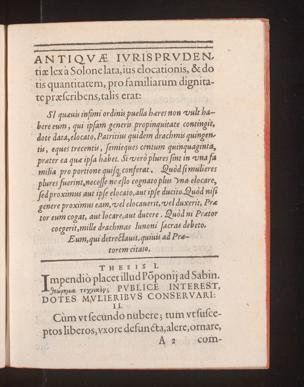 ANTIQVÆ IVRISPRVDEN-
tiæ lex à Solone lata, ius elocationis, & do
tis quantitatem, pro familiarum dignita-
te præscribens, talis erat:
SI quæuis infimi ordinis puella hæres non vult ha-
bere eum, qui ipsam generis propinquitate contingit,
dote data, elocato, Patritius quidem drachmis quingen-
tis, eques trecentis, semieques centum quinquaginta,
præter ea quæ ipsa habet. Si verò plures sint in vna fa
milia pro portione quisq; conferat. Quòd si mulieres
plures fuerint, necesse ne esto cognato plus vna elocare,
sed proximus aut ipse elocato, aut ipse ducito. Quòd nisi
genere proximus eam, vel elocauerit, vel duxerit, Præ
tor eum cogat, aut locare, aut ducere. Quòd ni Prætor
coegerit, mille drachmas Iunoni sacras debeto.
Eum, qui detrectauit, quiuis ad Præ-
torem citato.
THESIS I.
Impendiò placet illud Pōponij ad Sabin.
PVBLICE INTEREST,
DOTES MVLIERIBVS CONSERVARI:
II.
Cùm vt secundo nubere; tum vt susce-
ptos liberos, vxore defuncta, alere, ornare,
A 2 com-